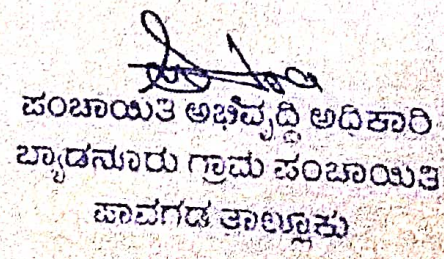 ಪಂಚಾಯಿತಿ ಅಭಿವೃದ್ಧಿ ಅಧಿಕಾರಿ
ಬ್ಯಾಡನೂರು ಗ್ರಾಮ ಪಂಚಾಯಿತಿ
ಪಾವಗಡ ತಾಲ್ಲೂಕು